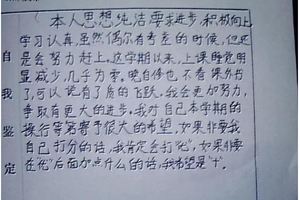 自我鉴定
本人思想纯洁要求进步,积极向上
学习认真虽然偶尔有考差的时候,但还
是会努力赶上。这学期以来,上课睡觉明
显减少,几乎为零,晚自修也不看课外书
了,可以说有了质的飞跃,我会更加努力,
争取有更大的进步。我对自己本学期的
操行等第寄予很大的希望,如果非要我
自己打分的话,我肯定会打“优”,如果非要
在“优”后面加点什么的话,我希望是“+”。